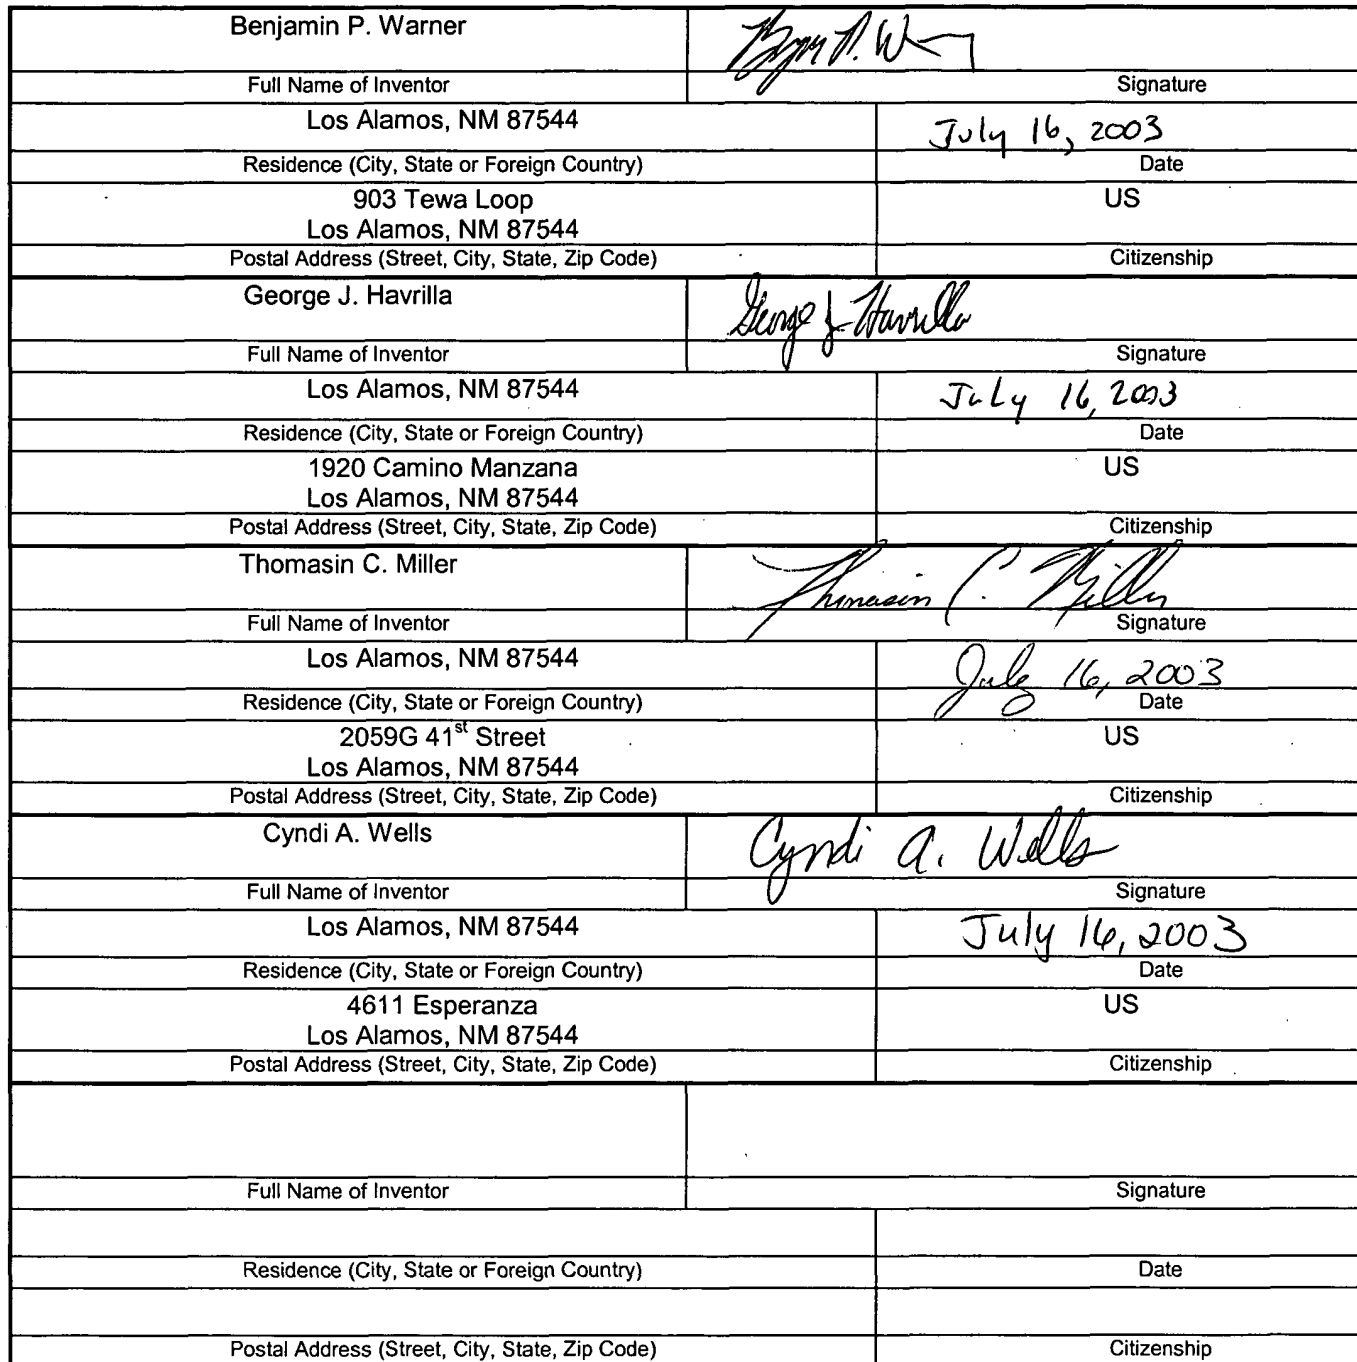 Benjamin P. Warner
Full Name of Inventor Signature
Los Alamos, NM 87544 July 16, 2003
Residence (City, State or Foreign Country) Date
903 Tewa Loop US
Los Alamos, NM 87544
Postal Address (Street, City, State, Zip Code) Citizenship
George J. Havrilla George J. Havrilla
Full Name of Inventor Signature
Los Alamos, NM 87544 July 16, 2003
Residence (City, State or Foreign Country) Date
1920 Camino Manzana US
Los Alamos, NM 87544
Postal Address (Street, City, State, Zip Code) Citizenship
Thomasin C. Miller Thomasin C. Miller
Full Name of Inventor Signature
Los Alamos, NM 87544 July 16, 2003
Residence (City, State or Foreign Country) Date
2059G 41st Street US
Los Alamos, NM 87544
Postal Address (Street, City, State, Zip Code) Citizenship
Cyndi A. Wells Cyndi A. Wells
Full Name of Inventor Signature
Los Alamos, NM 87544 July 16, 2003
Residence (City, State or Foreign Country) Date
4611 Esperanza US
Los Alamos, NM 87544
Postal Address (Street, City, State, Zip Code) Citizenship
Full Name of Inventor Signature
Residence (City, State or Foreign Country) Date
Postal Address (Street, City, State, Zip Code) Citizenship